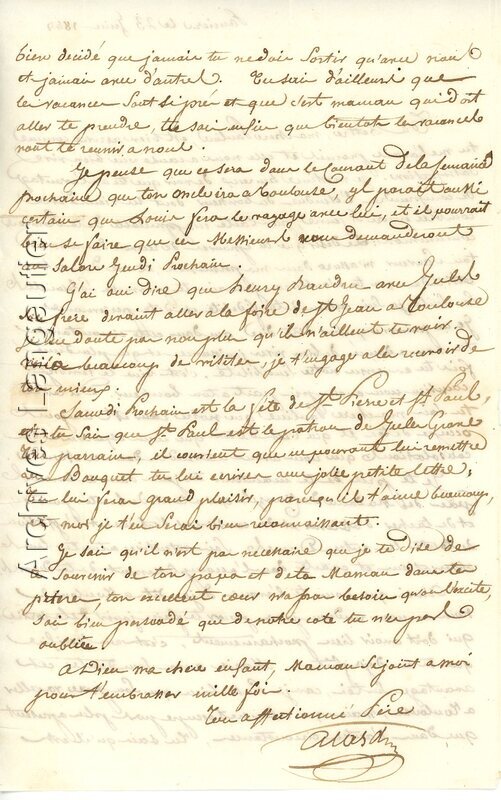 bien decidé que jamais tu ne dois sortir qu'avec nous
et jamais avec d'autres. Tu sais d'ailleurs que
les vacances sont si près et que c'est maman qui doit
aller te prendre tu sais enfin que bientot les vacances
vont te reunir a nous.
Je pense que ce sera dans le Courant de la Semaine
prochaine que ton oncle ira a Toulouse, il parait aussi
certain que Louis fera le voyage avec lui, et il pourrait
bien se faire que ces Messieurs vous demanderont
Salon Jeudi Prochain.
J'ai oui dire que henry avec Jules
frere devait aller a la foire de St Jean a Toulouse
Je ne doute pas non plus qu'ils n'aillent te voir.
voila beaucoup de visites, je t'engage a les recevoir de
ton mieux.
Samedi Prochain est la fête de St Pierre et St Paul,
et tu sais que St Paul est le patron de Jules
ton parrain, il convient que ne pouvant lui remettre
un Bouquet tu lui ecrives une jolie petite lettre;
Ca lui fera grand plaisir, parcequ'il t'aime beaucoup,
moi je t'en serai bien reconnaissant.
Je sais qu'il n'est pas necessaire que je te dise de
te Souvenir de ton papa et de ta Maman dans tes
prieres, ton excellent coeur n'a pas besoin qu'on l'excite,
sois bien persuadé que de notre coté tu n'es pas
oubliée
a Dieu ma chere enfant, Maman se joint a moi
pour t'embrasser mille fois.
Ton affectionné Père
Archives Languedoc